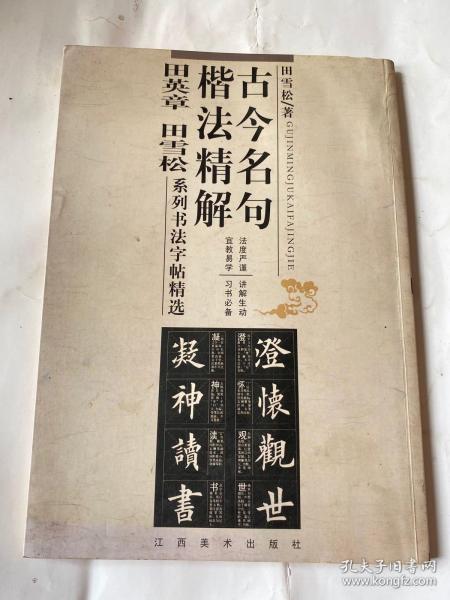 田雪松/著
GUJINMINGJUKAIFAJINGJIE
古今名句
楷法精解
法度严谨 讲解生动
宜教易学 习书必备
田英章 田雪松 系列书法字帖精选
澄懷觀世
澄 怀 观 世
凝神讀書
凝 神 读 书
江西美术出版社
孔夫子旧书网
kongfz.com